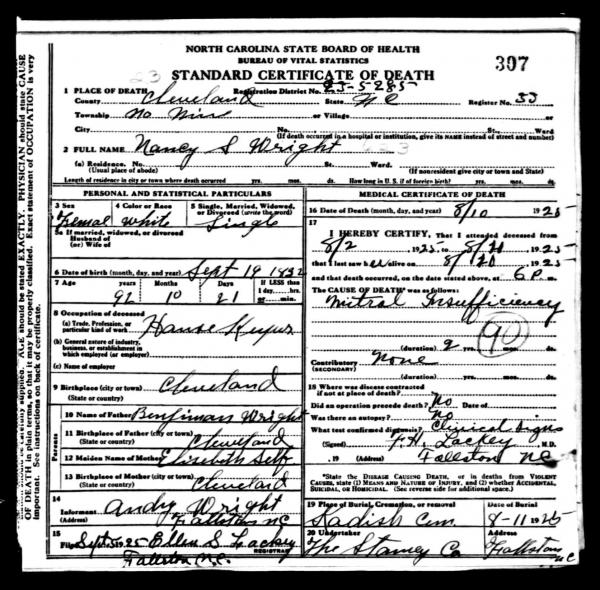 NORTH CAROLINA STATE BOARD OF HEALTH
BUREAU OF VITAL STATISTICS
307
23
STANDARD CERTIFICATE OF DEATH
1 PLACE OF DEATH Registration District No. 23-5285
County Cleveland State NC Register No. 33
Township No Nine or Village
City No. St. Ward
(If death occurred in a hospital or institution, give its NAME instead of street and number)
2 FULL NAME Nancy S Wright
(a) Residence. No. St. Ward
(Usual place of abode) (If nonresident give city or town and State)
Length of residence in city or town where death occurred yrs. mos. ds. How long in U. S. if of foreign birth? yrs. mos. ds.
PERSONAL AND STATISTICAL PARTICULARS
3 Sex 4 Color or Race 5 Single, Married, Widowed, or Divorced (write the word)
Femal White Single
5a If married, widowed, or divorced
Husband of
(or) Wife of
6 Date of birth (month, day, and year) Sept 19 1832
7 Age years Months Days If LESS than 1 day, hrs. or min.
92 10 21
8 Occupation of deceased
(a) Trade, Profession, or particular kind of work House Keeper
(b) General nature of industry, business, or establishment in which employed (or employer)
(c) Name of employer
9 Birthplace (city or town) Cleveland
(State or country)
Parents
10 Name of Father Benjiman Wright
11 Birthplace of Father (city or town) Cleveland
(State or country)
12 Maiden Name of Mother Elizabeth Self
13 Birthplace of Mother (city or town) Cleveland
(State or country)
14 Informant Andy Wright
(Address) Fallston NC
15 Filed Sept 5 25 Ellen S Lackey
REGISTRAR
Fallston N.C.
MEDICAL CERTIFICATE OF DEATH
16 Date of Death (month, day, and year) 8/10 1925
17
I HEREBY CERTIFY, That I attended deceased from
8/2 1925 to 8/20 1925
that I last saw her alive on 8/20 1925
and that death occurred, on the date stated above, at 6 P m.
The CAUSE OF DEATH was as follows:
Mitral Insufficiency
90
(duration) 2 yrs. mos. ds.
Contributory None
(SECONDARY)
(duration) yrs. mos. ds.
18 Where was disease contracted
if not at place of death?
Did an operation precede death? No Date of
Was there an autopsy? no
What test confirmed diagnosis? Clinical Signs
(Signed) F.H. Lackey M.D.
, 19 (Address) Fallston NC
*State the DISEASE CAUSING DEATH, or in deaths from VIOLENT CAUSES, state (1) MEANS AND NATURE OF INJURY, and (2) whether ACCIDENTAL, SUICIDAL, OR HOMICIDAL. (See reverse side for additional space.)
19 Place of Burial, Cremation, or removal Date of Burial
Kadish Cem 8-11 1925
20 Undertaker Address
The Stamey Co Fallston NC
AGE should be stated EXACTLY. PHYSICIAN should state CAUSE
OF DEATH in plain terms, so that it may be properly classified. Exact statement of OCCUPATION is very
important. See instructions on back of certificate.